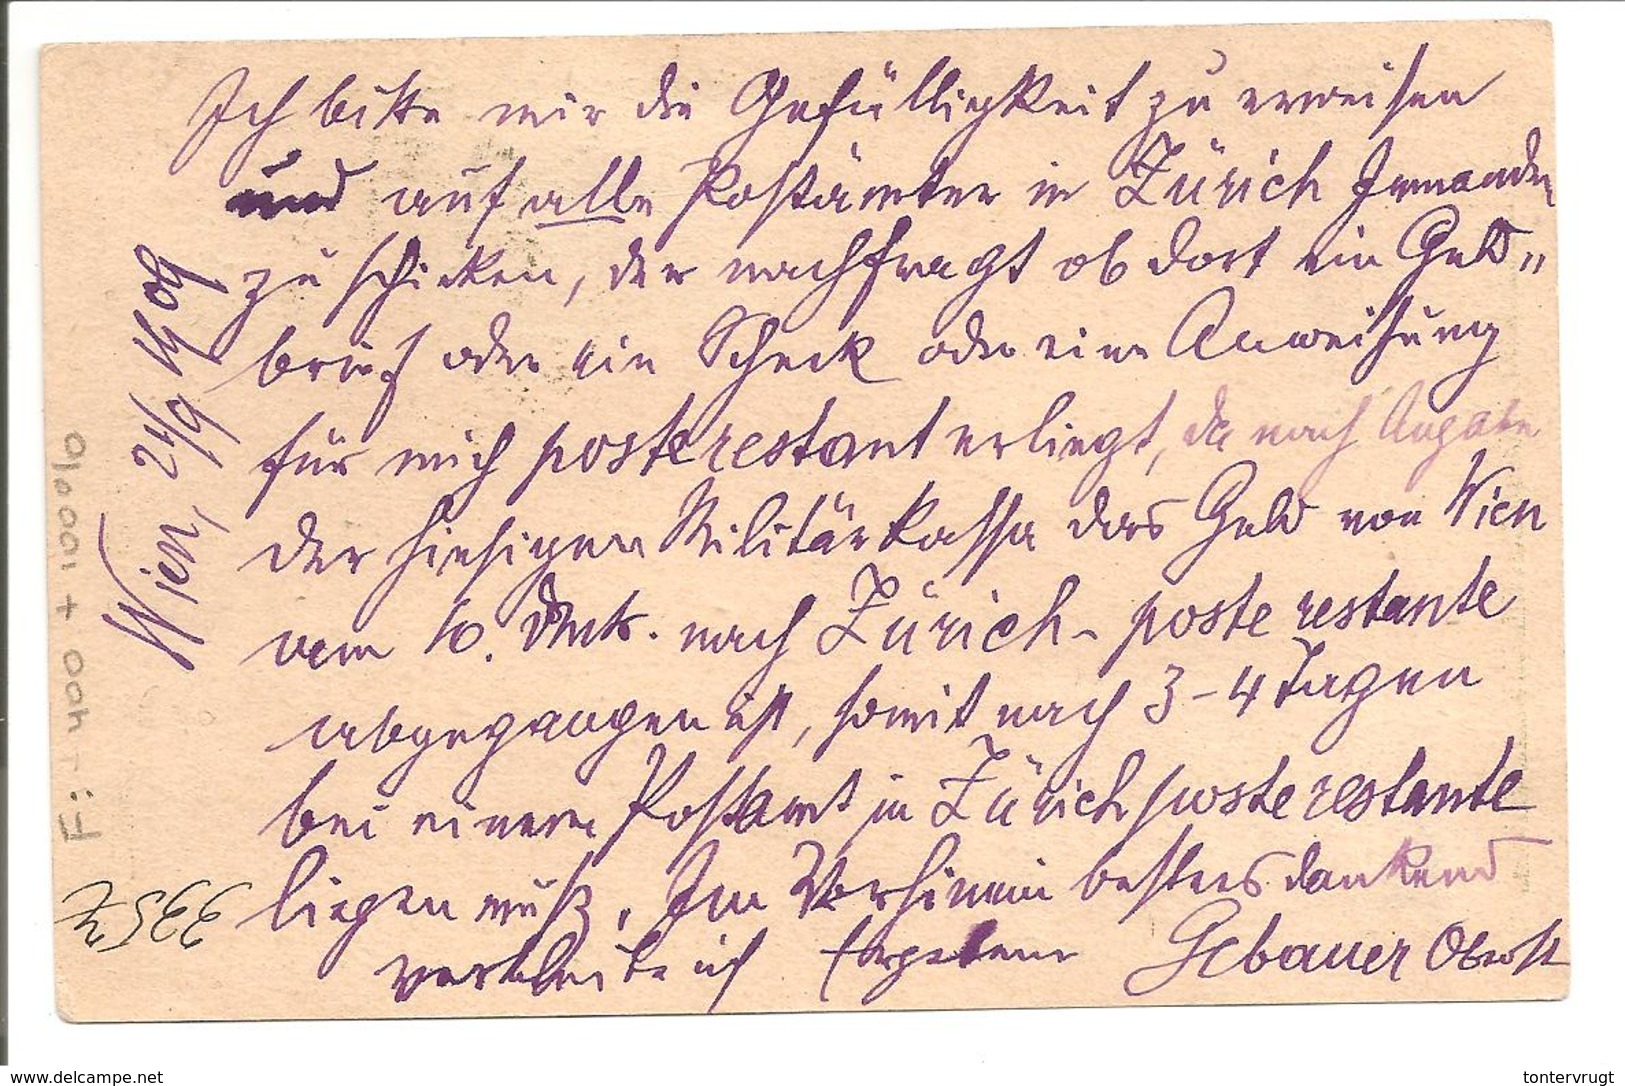 Ich bitte mir die Gefülligkeit zu erweisen
und auf alle Postämter in Zürich Jemanden
zu schicken, der nachfragt ob dort ein Geld„
brief oder ein Scheck oder eine Anweisung
für mich poste restant erliegt, da nach Angabe
der hiesigen Militärkassa das Geld von Wien
vom 10. nach Zürich - poste restante
abgegangen ist, somit nach 3-4 Tagen
bei einem Postamt in Zürich poste restante
liegen muß. Im Vorhinein bestens dankend
verbleibe ich Ergebener Gebauer Oberst
Wien, 24/9 1909
F: - 400 + 100%
delcampe.net
tontervrugt